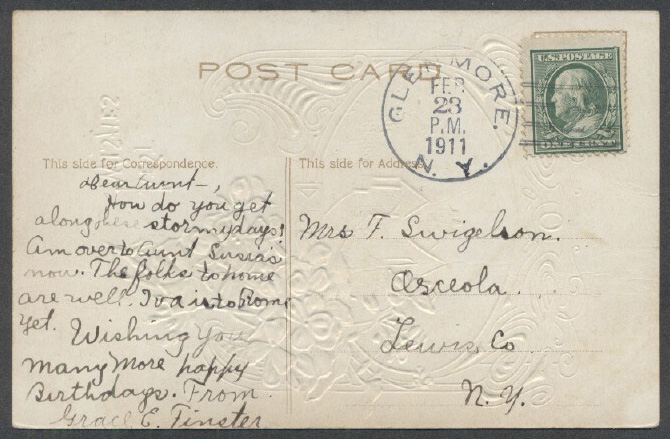 POST CARD
GLENMORE.
FEB
23
P.M.
1911
N. Y.
U.S.POSTAGE
ONE CENT
This side for Correspondence.
This side for Address.
Dear Aunt—,
How do you get
along these stormy days?
Am over to Aunt Susia's
now. The folks to home
are well. Iva is to Rome
yet. Wishing You
Many More happy
Birthdays. From
Grace E. Finster
Mrs F. Swigelson.
Osceola.
Lewis Co
N. Y.